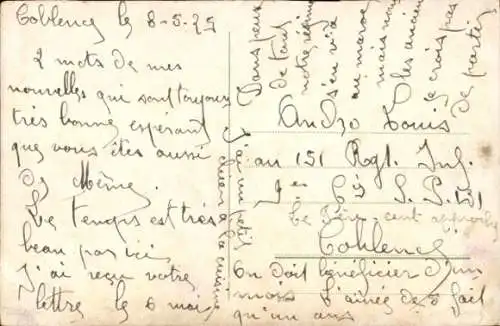 Coblence le 8-5-25
2 mots de mes
nouvelles qui sont toujours
très bonne espérant
que vous êtes aussi
de Même.
Le temps est très
beau par ici
J'ai reçu votre
lettre le 6 mai
J'ai un petit
chien à la cuisine
Dans peu
de temps
notre
s'en va
au maroc
mais nous
les anciens
je crois pas
de partir
Andro Louis
au 151 Regt. Inf.
Cie S.P. 151
Coblence
On doit bénéficier d'un
mois l'année de fait
qu'un ans